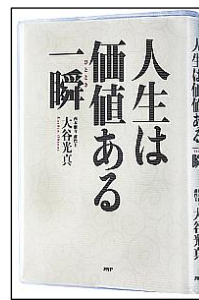 人生は
価値ある
一瞬
ひととき
大谷光真
PHP
人生は価値ある一瞬
大谷光真
PHP